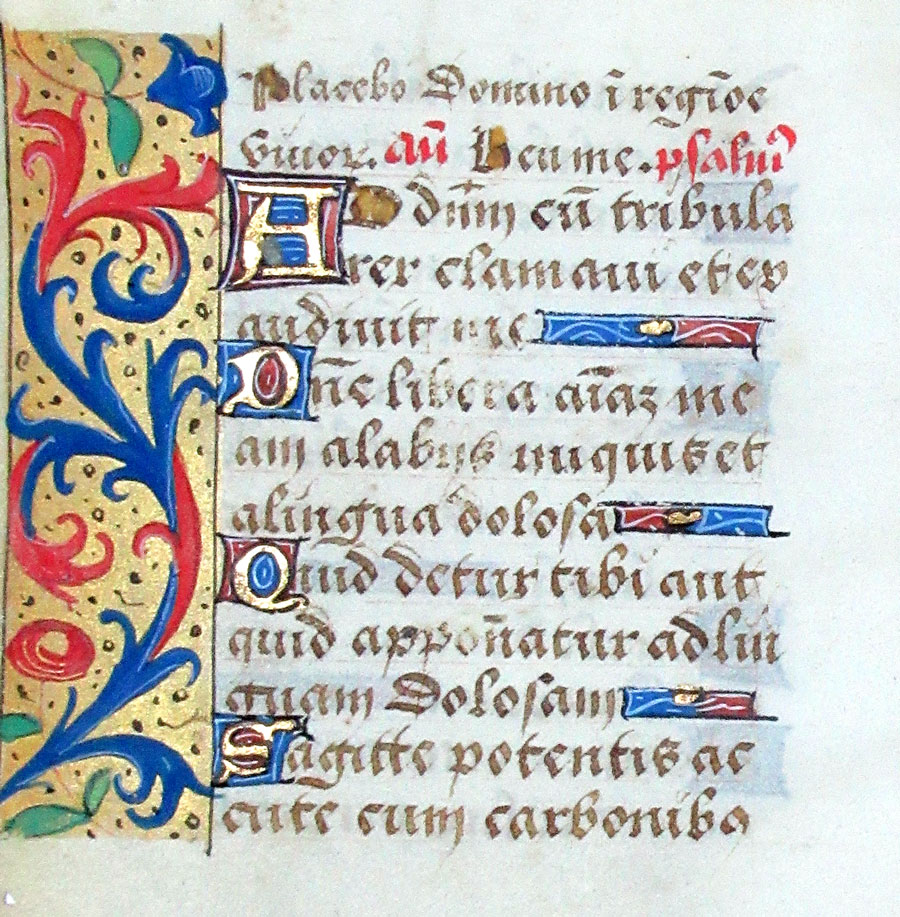 Placebo Domino ī regiōe
viuor. añ Heu me. psalmꝰ
AD dn̄m cū tribula
rer clamaui et ex
audiuit me
Dn̄e libera aīaz me
am alabijs iniquis et
alingua dolosa
Quid detur tibi aut
quid appon̄atur ad lin
guam Dolosam
Sagitte potentis ac
cute cum carboniba